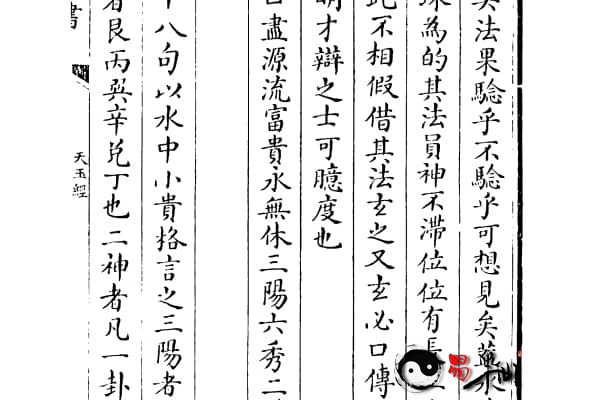 法果騐乎不騐乎可想見矣
為的其法員神不滯位位有長
此不相假借其法玄之又玄必口傳
才辯之士可臆度也
盡源流富貴永無休三陽六秀二
十八句以水中小貴格言之三陽者
者艮丙巽辛兌丁也二神者凡一卦
書
天玉經
易